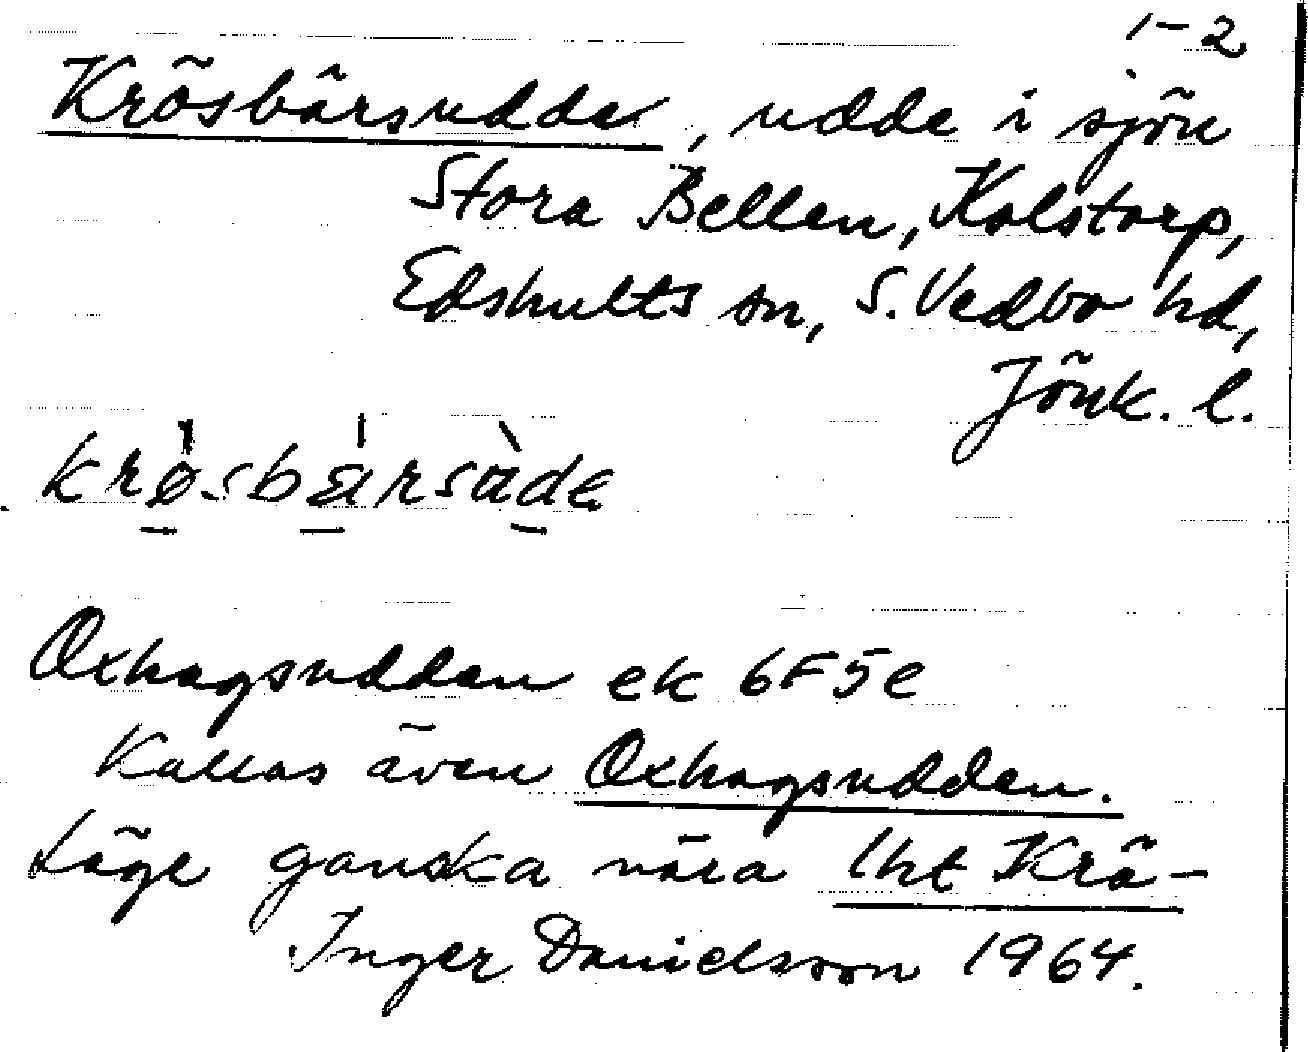 1-2
Krösbärsudde, udde i sjön
Stora Bellen, Kolstorp,
Edshults sn, S. Vedbo hd,
Jönk. l.
Oxhagsudden ek 6F5e
Kallas även Oxhagsudden.
Läge ganska nära lht Krä-
Inger Danielsson 1964.